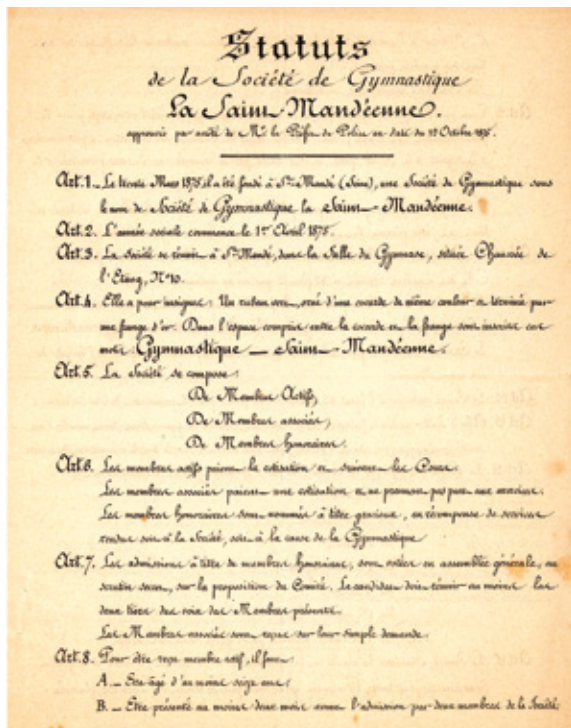 Statuts
de la Société de Gymnastique
La Saint-Mandéenne.
approuvés par arrêté de Mr le Préfet de Police en date du Octobre 1875.
Art. 1. _ Le trente Mars 1875 il a été fondé à St Mandé (Seine), une Société de Gymnastique sous
le nom de Société de Gymnastique la Saint-Mandéenne.
Art. 2. L'année sociale commence le 1er Avril 1875.
Art. 3. La Société se réunit à St Mandé, dans la Salle du Gymnase, située Chaussée de
l'Etang, No 10.
Art. 4. Elle a pour insigne : Un ruban vert, orné d'une cocarde de même couleur et terminée par
une frange d'or. Dans l'espace compris entre la cocarde et la frange sont inscrits ces
mots Gymnastique _ Saint-Mandéenne.
Art. 5. La Société se compose :
De Membres Actifs,
De Membres associés,
De Membres honoraires.
Art. 6. Les membres actifs paient la cotisation et suivent les Cours.
Les membres associés paient une cotisation et ne prennent pas part aux exercices.
Les membres honoraires sont nommés à titre gracieux, en récompense de services
rendus soit à la Société, soit à la cause de la Gymnastique
Art. 7. Les admissions à titre de membres honoraires, sont votées en assemblée générale, au
scrutin secret, sur la proposition du Comité. Le candidat doit réunir au moins les
deux tiers des voix des Membres présents.
Les Membres associés sont reçus sur leur simple demande.
Art. 8. Pour être reçu membre actif, il faut :
A _ Etre âgé d'au moins seize ans ;
B. _ Etre présenté au moins deux mois avant l'admission par deux membres de la Société